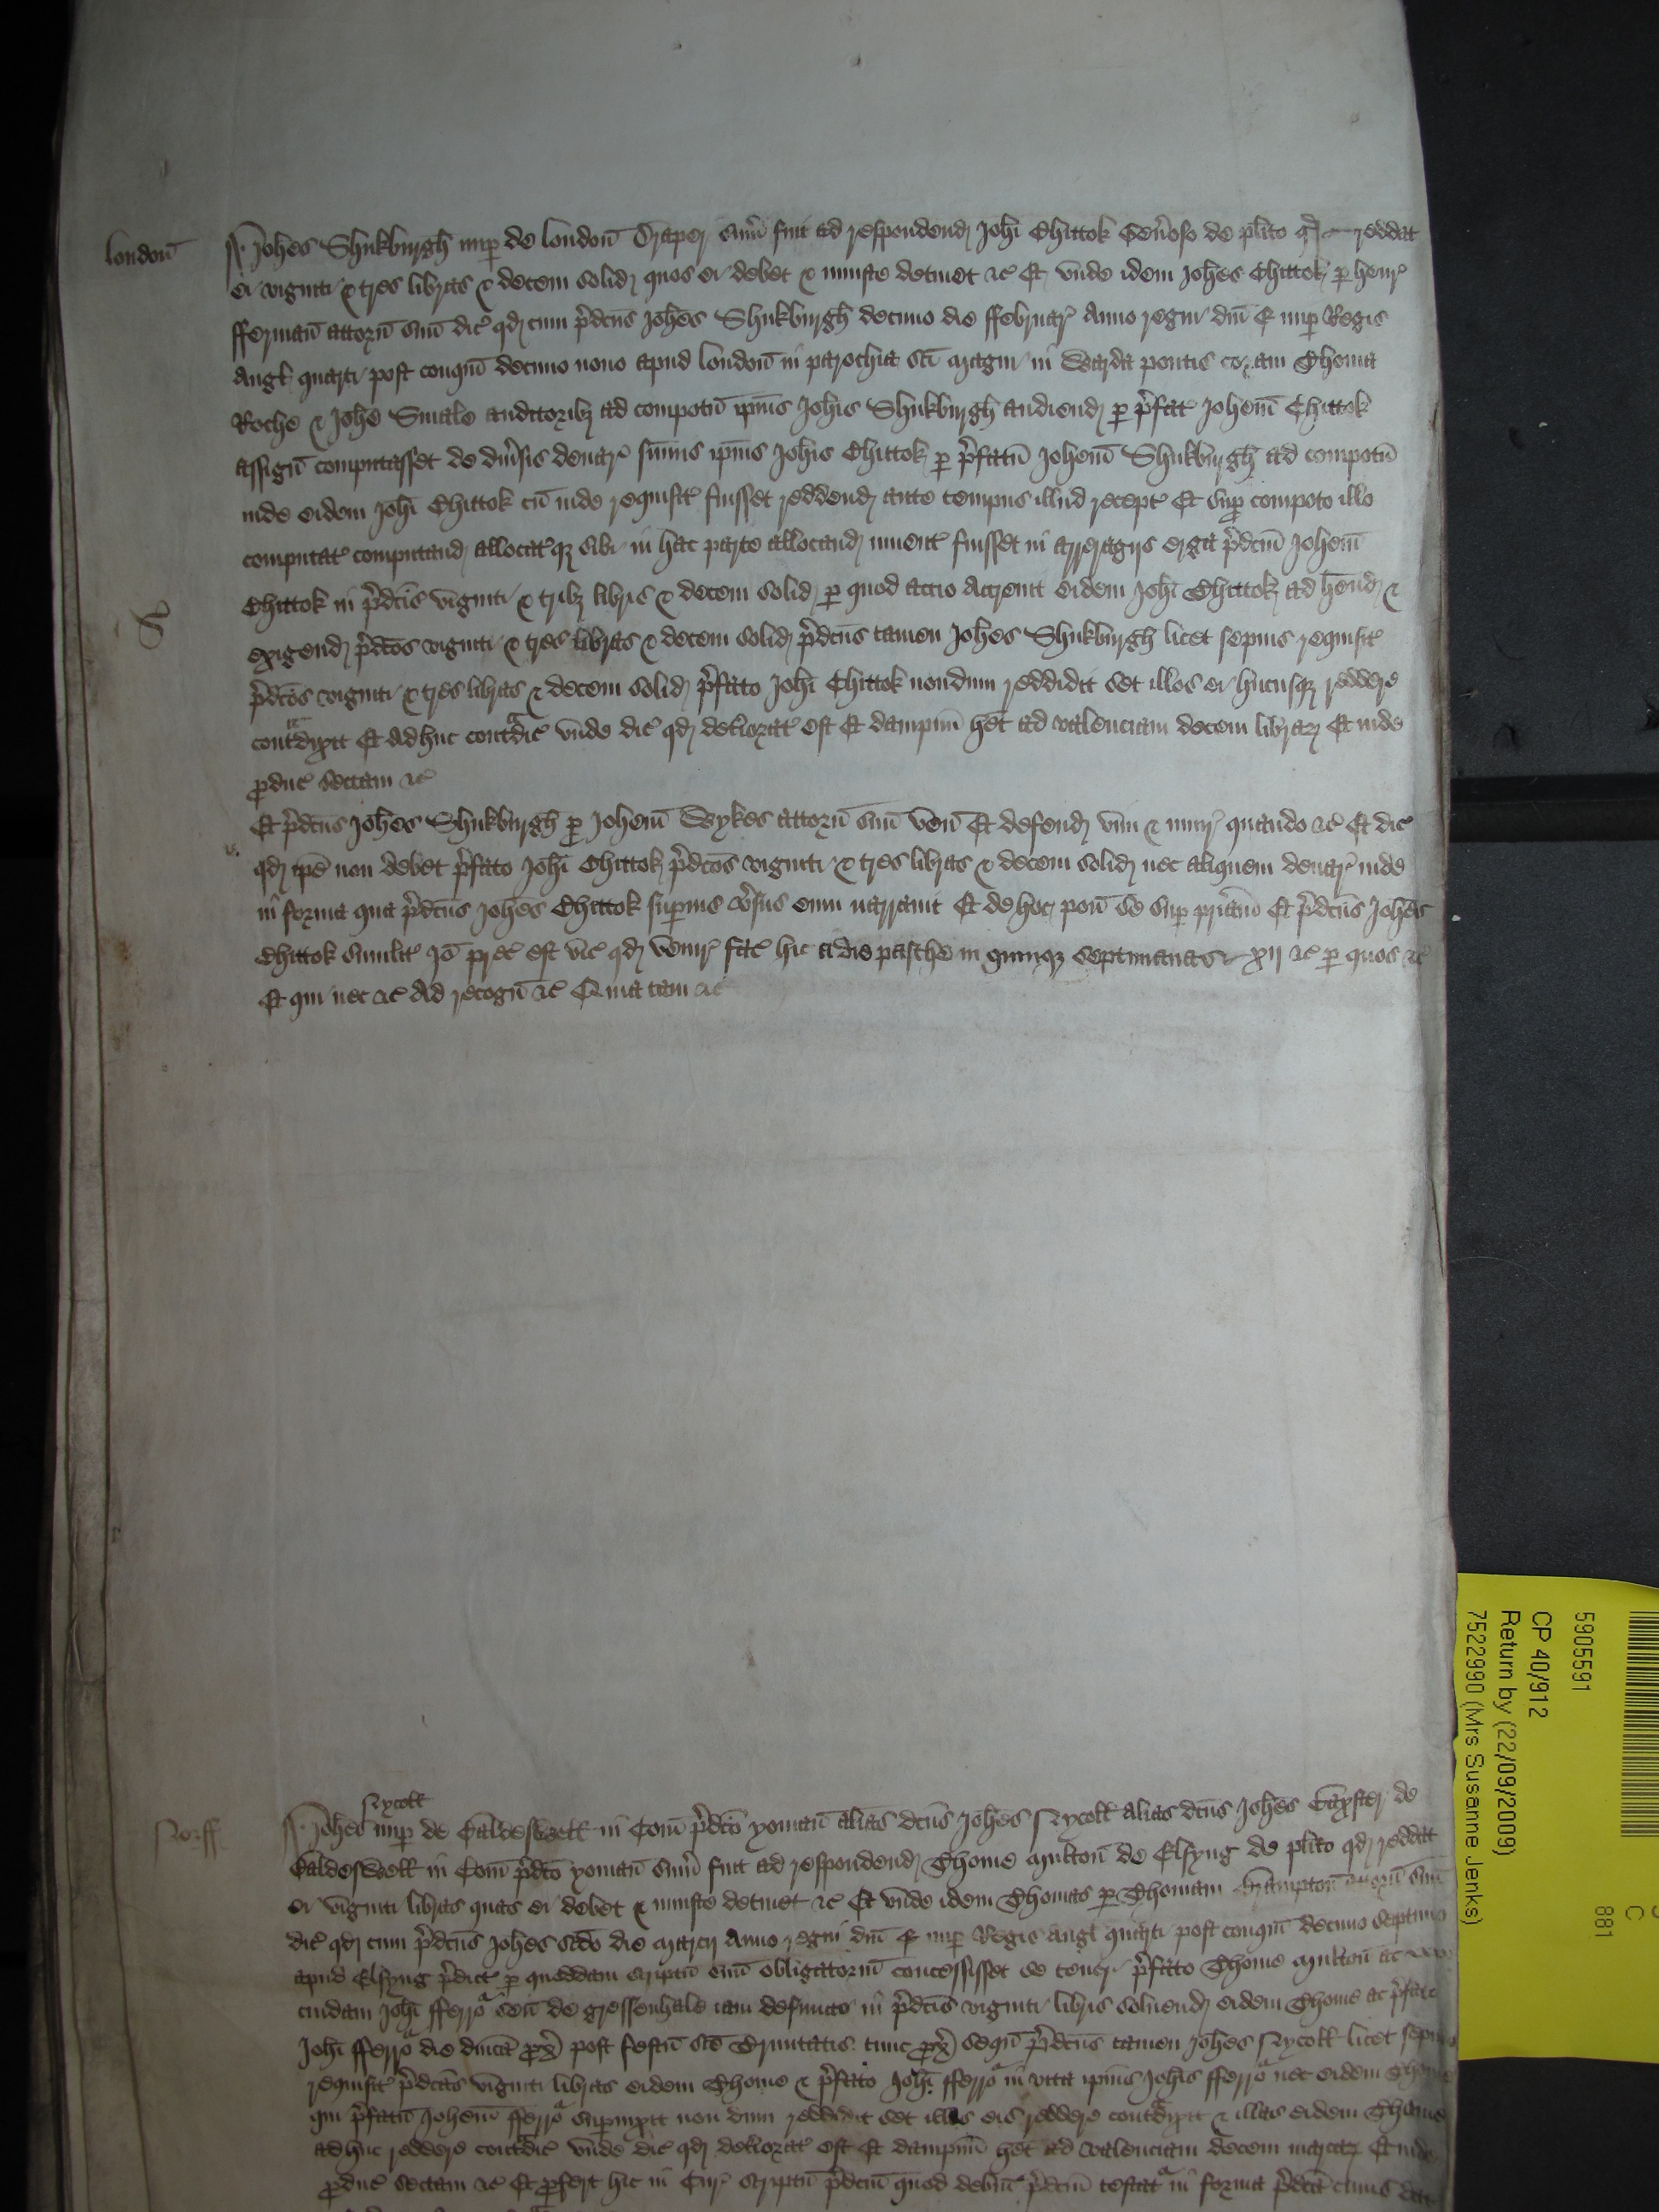 london̄
Joh̄es Shukburgh nup̱ de london̄ Draper sum̄ fuit ad respondend Joh̄i Chittok Gen̄oso de pl̄ito qđ reddat
ei viginti & tres libras & decem solid quos ei debet & iniuste detinet &c̄ Et vnde idem Joh̄es Chittok p̱ henr̄
fferman̄ attorn̄ suū dic̄ qđ cum p̄dc̄us Joh̄es Shukburgh decimo die ffebruar̄ Anno regni dn̄i E nup̱ Regis
Angl̄ quarti post conqūm decimo nono apud london̄ in parochia sc̄i Magni in Warda pontis coram Thoma
Roche & Joh̄e Smale auditorib3 ad compotū ip̄ius Joh̄is Shukburgh audiend p̱ p̄fat̄ Joh̄em Chittok
assign̄ computasset de diūsis denar̄ sum̄is ip̄ius Joh̄is Chittok p̱ p̄fatū Joh̄em Shukburgh ad compotū
inde eidem Joh̄i Chittok cū inde requisit̄ fuisset reddend ante tempus illud recept̄ Et sup̱ compoto illo
computat̄ computand allocat̄q3 sibi in hac parte allocand inuent̄ fuisset in arreragijs erga p̄dc̄m Joh̄em
Chittok in p̄dc̄is viginti & trib3 libris & decem solid p̱ quod accio accreuit eidem Joh̄i Chittok ad h̄end &
S
exigend p̄dc̄os viginti & tres libras & decem solid p̄dc̄us tamen Joh̄es Shukburgh licet sepius requisit̄
p̄dc̄os viginti & tres libras & decem solid p̄fato Joh̄i Chittok nondum reddidit set illos ei hucusq3 reddere
contᵃdixit Et adhuc contᵃdic̄ vnde dic̄ qđ det̄iorat̄ est Et dampnū h̄et ad valenciam decem librar̄ Et inde
ꝓduc̄ sectam &c̄
Et p̄dc̄us Joh̄es Shukburgh p̱ Joh̄em Wykes attorn̄ suū ven̄ Et defend vim & iniur̄ quando &c̄ Et dic̄
qđ ip̄e non debet p̄fato Joh̄i Chittok p̄dc̄os viginti & tres libras & decem solid nec aliquem denar̄ inde
in forma qua p̄dc̄us Joh̄es Chittok superius v̄sus eum narrauit Et de hoc pon̄ se sup̱ pr̄iam Et p̄dc̄us Joh̄es
Chittok similit̄ Jō prec̄ est vic̄ qđ venir̄ fac̄ hic a die pasche in quinq3 septimanas xij &c̄ p̱ quos &c̄
Et qui nec &c̄ Ad recogn̄ &c̄ Quia tam &c̄
Norff
Nycoll
Joh̄es nup̱ de Baldeswell in Com̄ p̄dc̄o yoman̄ alias dc̄us Joh̄es Nycoll alias dc̄us Joh̄es Baxster de
Baldeswell in Com̄ p̄dc̄o yoman̄ sum̄ fuit ad respondend Thome Multon̄ de Elsyng de pl̄ito qđ reddat
ei viginti libras quas ei debet & iniuste detinet &c̄ Et vnde idem Thomas p̱ Thomam attorn̄ suū
dic̄ qđ cum p̄dc̄us Joh̄es sc̄do die Marcij Anno regni dn̄i E nup̱ Regis Angl̄ quarti post conqūm decimo septimo
apud Elsyng p̄dict̄ p̱ quoddam scriptū suū obligatoriū concessisset se teneri p̄fato Thome Multon̄ ac
cuidam Joh̄i fferroᵃ sen̄ de gressenhale iam defuncto in p̄dc̄is viginti libris soluend eidem Thome ac p̄fato
Joh̄i fferroᵃ die dn̄ica ꝓx̄ post festū sc̄e Trinitatis tunc ꝓx̄ seqū p̄dc̄us tamen Joh̄es Nycoll licet sepius
requisit̄ p̄dc̄as viginti libras eidem Thome & p̄fato Joh̄i fferroᵃ in vita ip̄ius Joh̄is fferroᵃ nec eidem Thome
qui p̄fatū Joh̄em fferroᵃ superuixit non dum reddidit set illas eis reddere contᵃdixit & illas eidem Thome
adhuc reddere contᵃdic̄ vnde dic̄ qđ det̄iorat̄ est Et dampnū h̄et ad valenciam decem marcar̄ Et inde
ꝓduc̄ sectam &c̄ Et ꝓfert hic in Cur̄ scriptū p̄dc̄m quod debitū p̄dc̄m testatᵃ in forma p̄dc̄a cuius dat̄
5905591
CP 40/912
Return by (22/09/2009)
7522990 (Mrs Susanne Jenks)
C
881